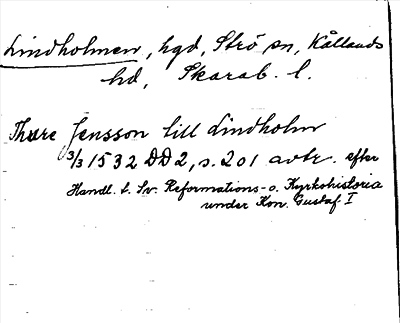 Lindholmen, hgd, Strö sn, Kållands
hd, Skarab. l.
Thure Jensson till Lindholm
3/3 1532 DD2, s. 201 avtr. efter
Handl. t. Sv. Reformations- o. Kyrkohistoria
under Kon. Gustaf I